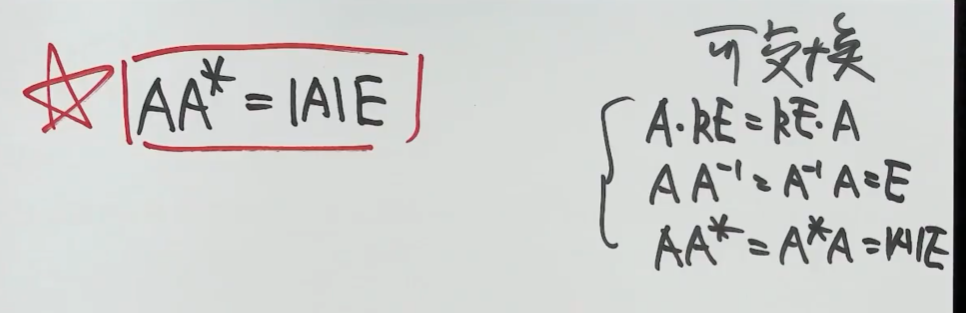 AA* = |A|E
可交换
A·kE = kE·A
AA⁻¹ = A⁻¹A = E
AA* = A*A = |A|E